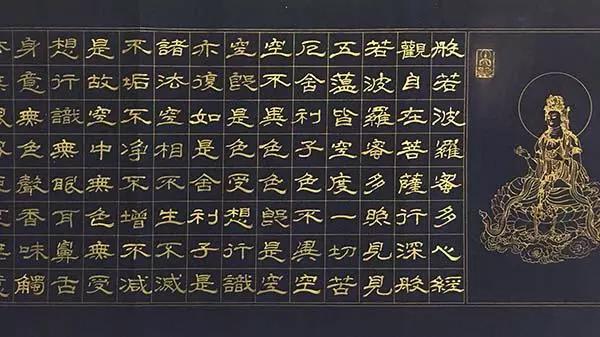 般若波羅蜜多心經
觀自在菩薩行深般
若波羅蜜多晚見見
五蘊皆空度一切苦
厄舍利子色不異空
空不異色色即是空
空即是色受想行識
亦復如是舍利子是
諸法空相不生不滅
不垢不淨不增不減
是故空中無色無受
想行識無眼耳鼻舌
身意無色聲香味觸